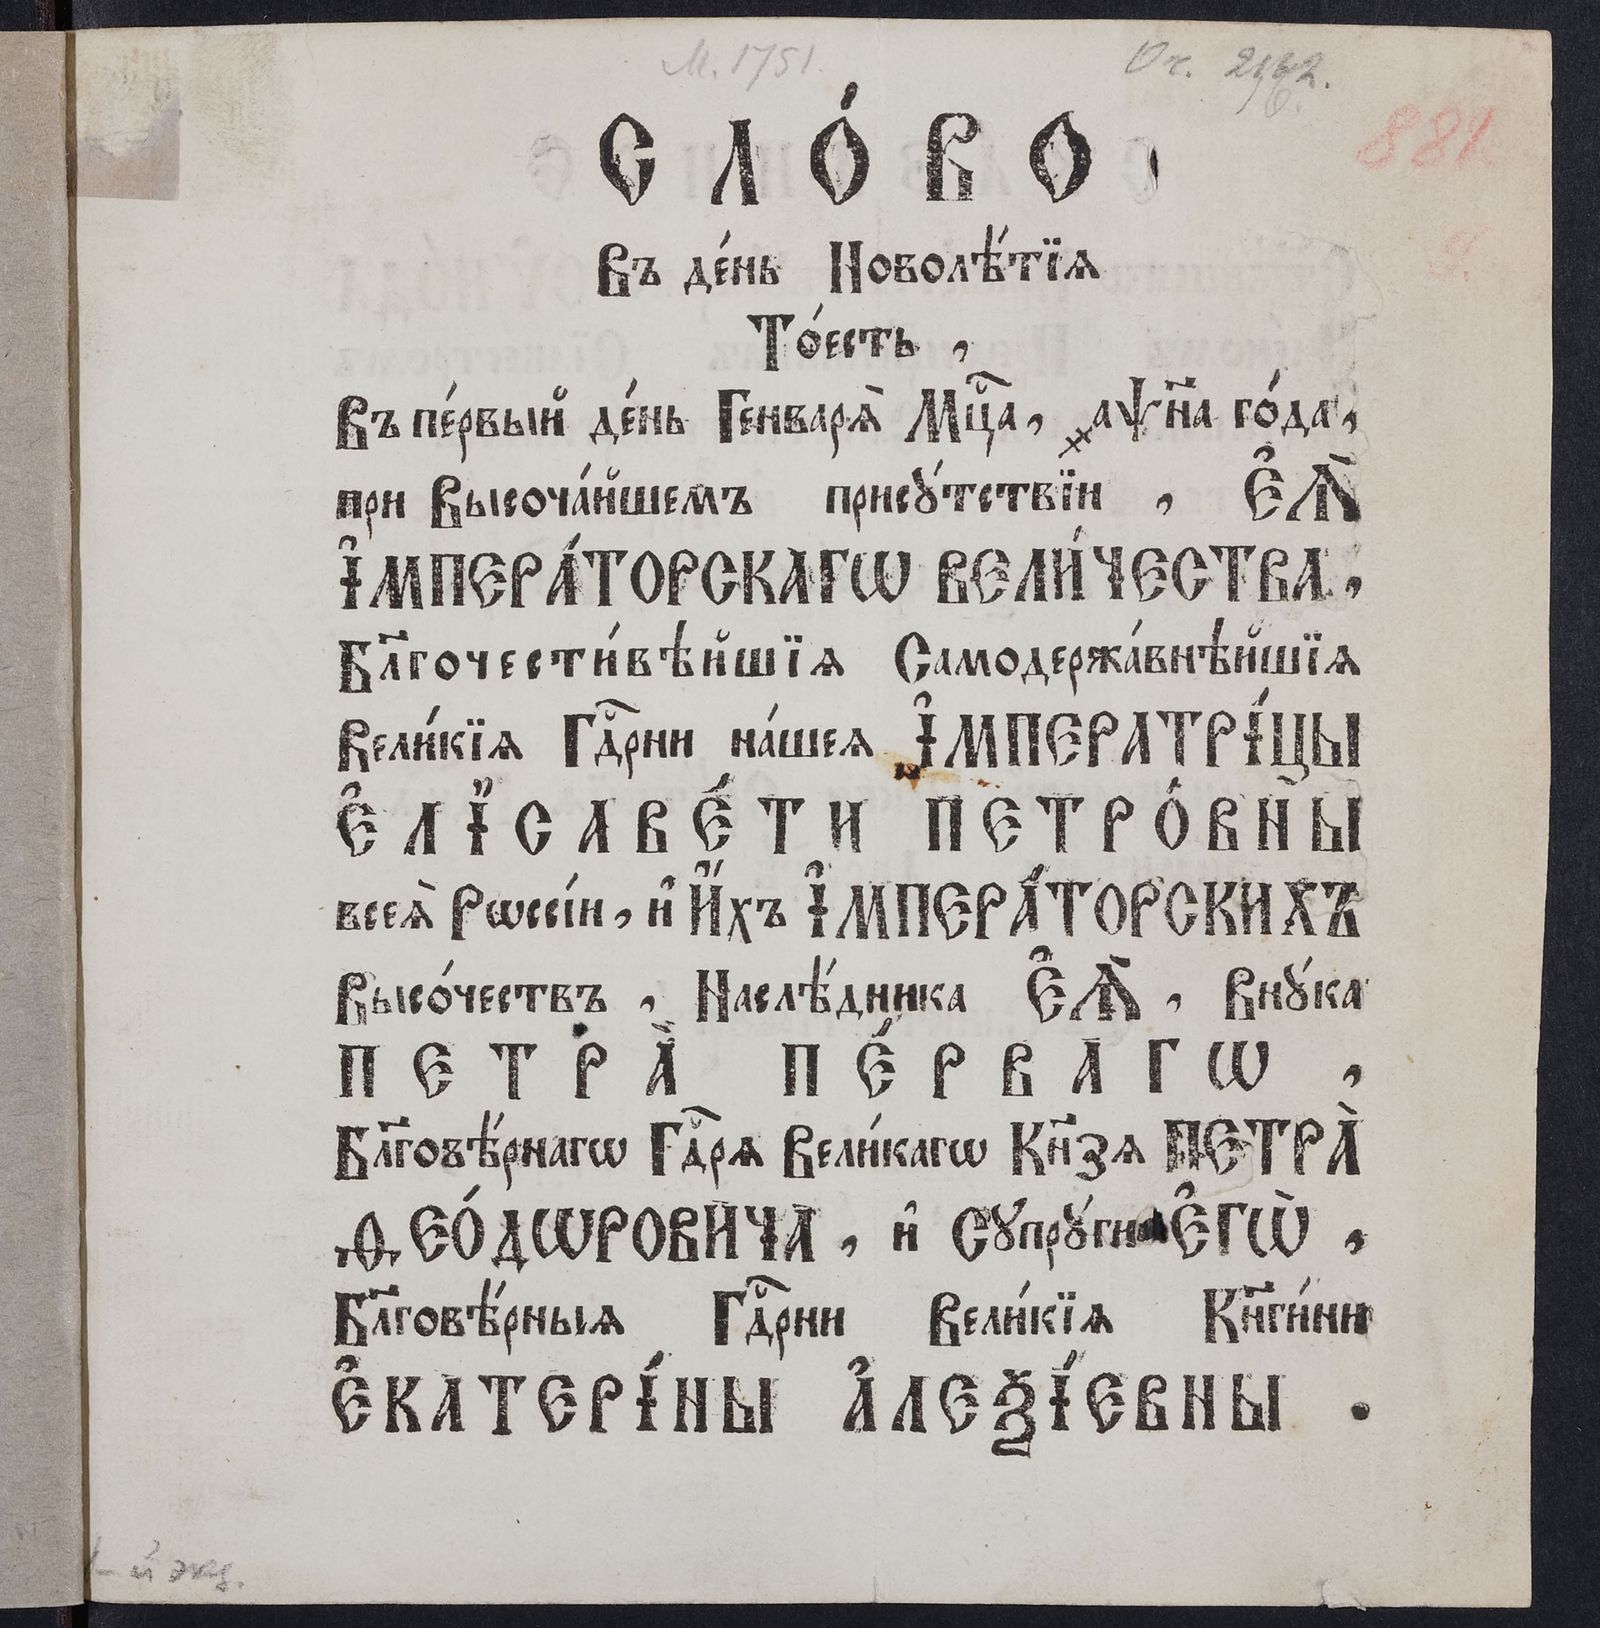 М. 1751.
881
СЛО́ВО
Въ де́нь Новолѣ́тїѧ
То́есть ,
Въ пе́рвый де́нь Генварѧ̀ Мц҃а, ҂аѱн҃а го́да,
при Высоча́йшемъ прису́тствїи , Є҆Ѧ̀
І҆МПЕРА́ТОРСКАГѠ ВЕЛИ́ЧЕСТВА,
Бл҃гочести́вѣйшїѧ Самодержа́внѣйшїѧ
Вели́кїѧ Гдⷭ҇рни на́шеѧ І҆МПЕРАТРІ́ЦЫ
Є҆ЛІ҆САВЕ́ТИ ПЕТРО́ВНЫ
всеѧ̀ Рѡссі́и, и҆ И҆́хъ І҆МПЕРА́ТОРСКИХЪ
Высо́чествъ , Наслѣ́дника Є҆Ѧ̀ , Вну́ка
ПЕТРА̀ ПЕ́РВАГѠ ,
Бл҃говѣ́рнагѡ Гдⷭ҇рѧ Вели́кагѡ Кн҃зѧ ПЕТРА̀
Ѳ̑ЕО́ДѠРОВИЧА , и҆ Супру́ги Є҆ГѠ̀ ,
Бл҃говѣ́рныѧ Гдⷭ҇рни Вели́кїѧ Кн҃ги́ни
Є҆КАТЕРІ́НЫ А҆ЛЕѮІ́ЕВНЫ .
й экз.